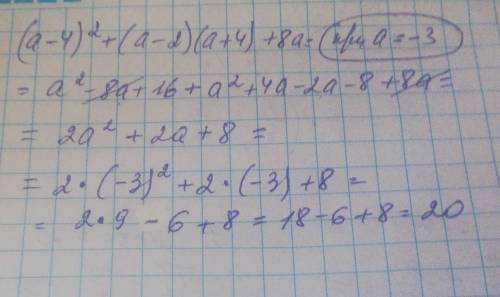 (a-4)² + (a-2)(a+4) + 8a = при a = -3
= a² - 8a + 16 + a² + 4a - 2a - 8 + 8a =
= 2a² + 2a + 8 =
= 2·(-3)² + 2·(-3) + 8 =
= 2·9 - 6 + 8 = 18 - 6 + 8 = 20